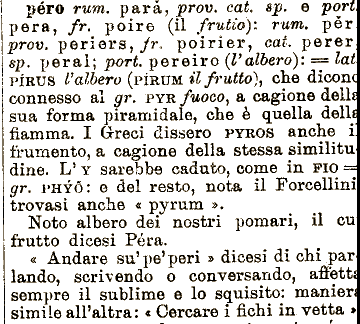 péro rum. parà, prov. cat. sp. e port
pera, fr. poire (il frutio): rum. për
prov. periers, fr. poirier, cat. perer
sp. peral; port. pereiro (l'albero): = lat
PÍRUS l'albero (PÍRUM il frutto), che dicono
connesso al gr. PYR fuoco, a cagione della
sua forma piramidale, che è quella della
fiamma. I Greci dissero PYROS anche i
frumento, a cagione della stessa similitu
dine. L'Y sarebbe caduto, come in FIO =
gr. PHÝÔ: e del resto, nota il Forcellini
trovasi anche « pyrum ».
Noto albero dei nostri pomari, il cu
frutto dicesi Péra.
« Andare su' pe' peri » dicesi di chi par
lando, scrivendo o conversando, affetta
sempre il sublime e lo squisito: manier
simile all'altra: « Cercare i fichi in vetta »